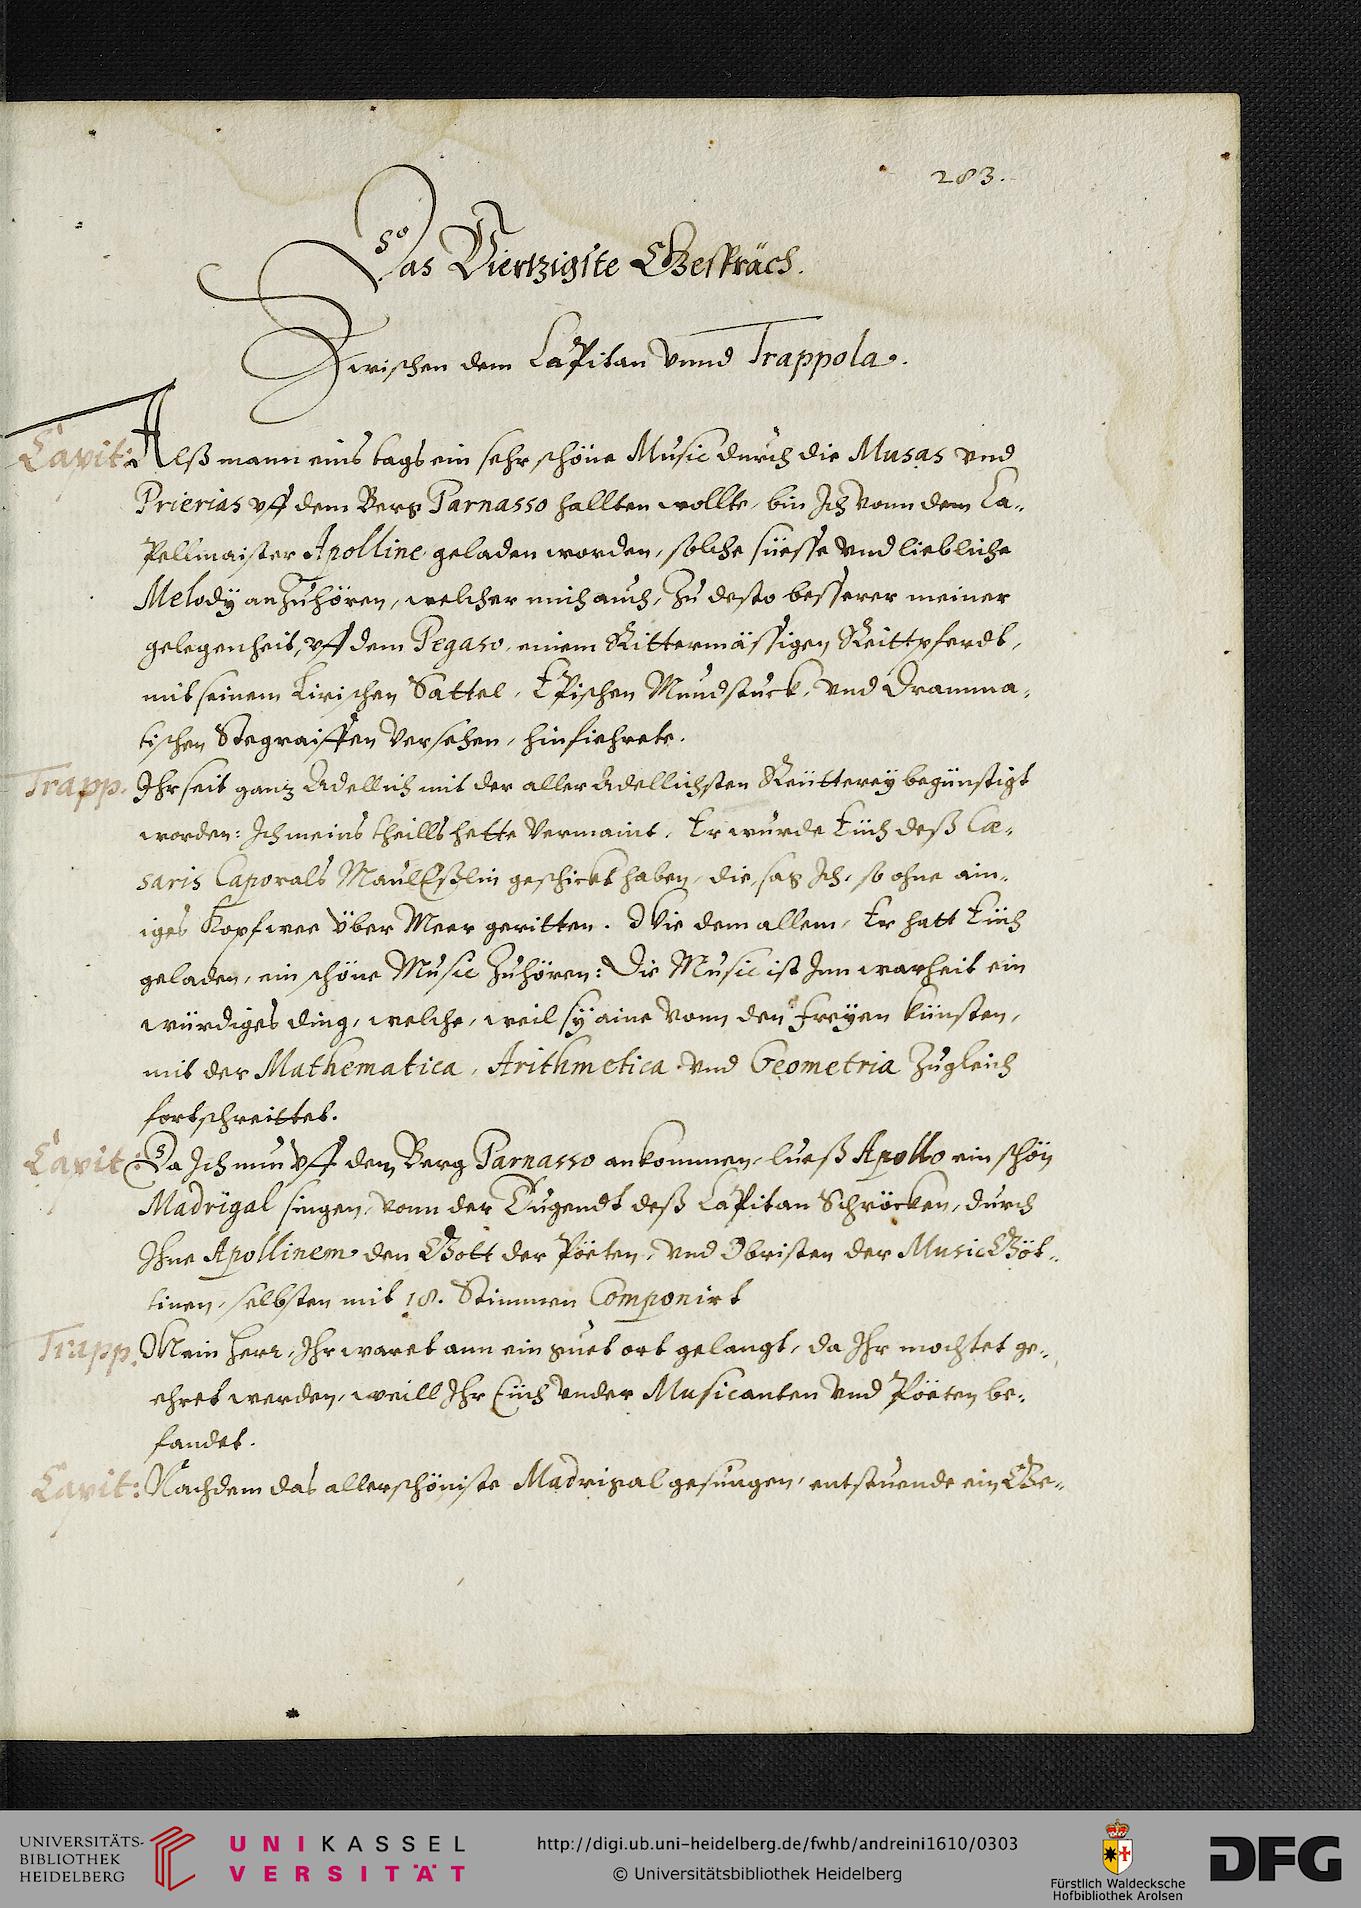 283.
Das Viertzigste Gespräch.
Zwischen dem Capitan vnnd Trappola.
Capit: Alß mann eins tags ein sehr schöne Music durch die Musas vnd
Prierias vff dem Berg Parnasso hallten wollte, bin Ich vonn dem Ca-
pellmaister Apolline geladen worden, solche süesse vnd liebliche
Melodÿ anzuhören, welcher mich auch, zu desto besserer meiner
gelegenheit, vff dem Pegaso, einem Rittermässigen Reittpferdt,
mit seinem Lirischen Sattel, Epischen Mundstuck, vnd Dramma-
tischen Stegraiffen versehen, hinfiehrete.
Trapp. Ihr seit ganz Adellich mit der aller Adellichsten Reütterey begünstigt
worden: Ich meins theills hette vermaint, Er wurde Eüch deß Cæ-
saris Caporals MaulEßlin geschickt haben, die, sag Ich, so ohne ain-
iges Kopfwee über Meer geritten. Wie dem allem, Er hatt Eüch
geladen, ein schöne Music zuhören: Die Music ist Inn warheit ein
würdiges ding, welche, weil sÿ aine vonn den Freÿen künsten,
mit der Mathematica, Arithmetica vnd Geometria zugleich
fortschreittet.
Capit: Da Ich nun vff den Berg Parnasso ankommen, lueß Apollo ein schön
Madrigal singen, vonn der Tugendt deß Capitan Schröcken, durch
Ihne Apollinem den Gott der Pöeten, vnd Obristen der Music Göt-
tinen, selbsten mit 18. Stimmen Componirt
Trapp. Mein Herr, Ihr waret ann ein guet ort gelangt, da Ihr mochtet ge-
ehret werden, weill Ihr Eüch vnder Musicanten vnd Pöeten be-
fandet.
Capit: Nachdem das allerschöniste Madrigal gesungen, entstuende ein Ge-
UNIVERSITÄTS-
BIBLIOTHEK
HEIDELBERG
UNIKASSEL
VERSITÄT
http://digi.ub.uni-heidelberg.de/fwhb/andreini1610/0303
© Universitätsbibliothek Heidelberg
Fürstlich Waldecksche
Hofbibliothek Arolsen
DFG